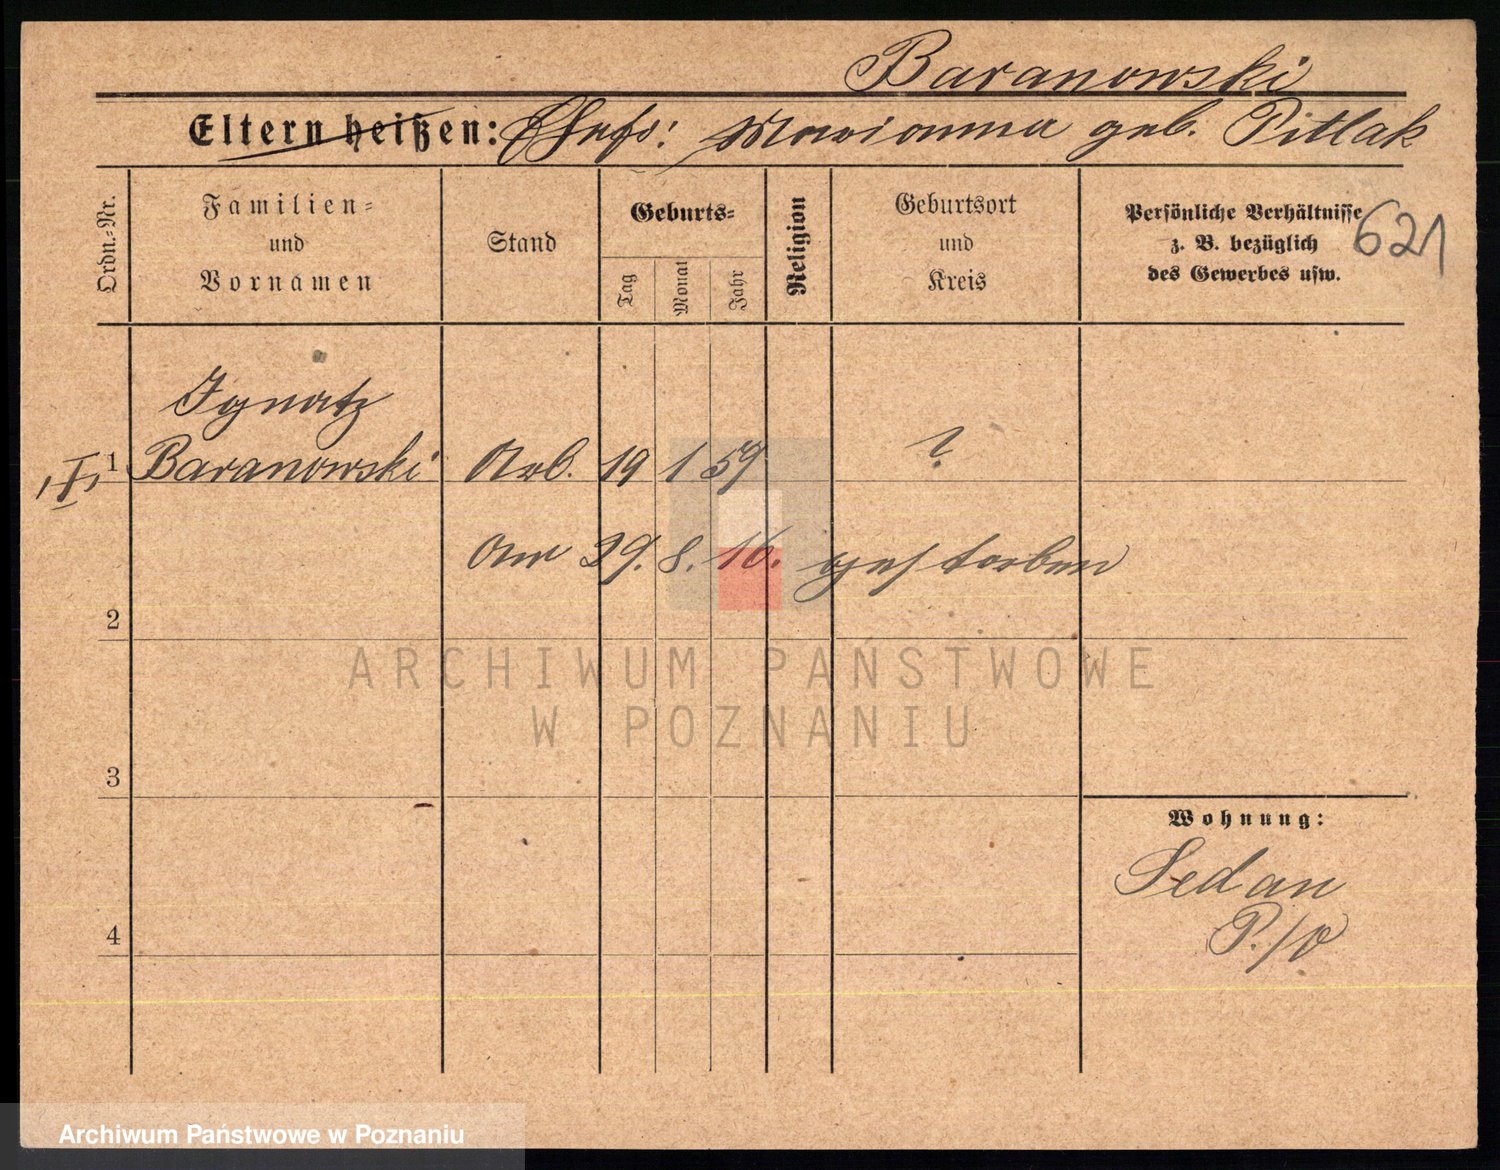 Baranowski
Eltern heißen: Ehefr: Marianna geb. Pitlak
Ordn.-Nr.
Familien-
und
Vornamen
Stand
Geburts-
Tag
Monat
Jahr
Religion
Geburtsort
und
Kreis
Persönliche Verhältnisse
z. B. bezüglich
des Gewerbes usw.
621
Ignatz
I 1 Baranowski Arb. 19 1 59 ?
Am 29. 8. 16. gestorben
2
ARCHIWUM PAŃSTWOWE
W POZNANIU
3
Wohnung:
Sedan
4
Archiwum Państwowe w Poznaniu